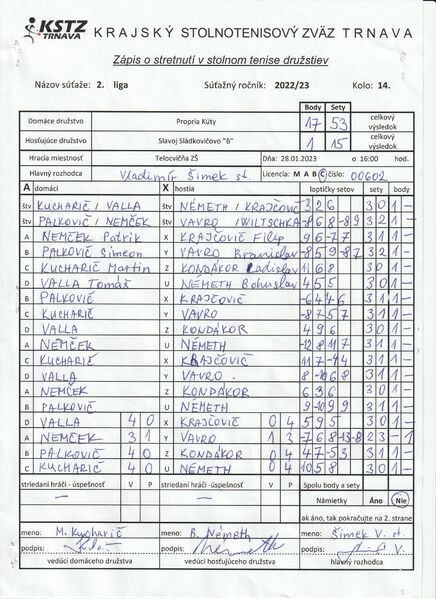 KSTZ TRNAVA KRAJSKÝ STOLNOTENISOVÝ ZVÄZ TRNAVA
Zápis o stretnutí v stolnom tenise družstiev
Názov súťaže: 2. liga Súťažný ročník: 2022/23 Kolo: 14.
Body Sety
Domáce družstvo Propria Kúty 17 53 celkový výsledok
Hosťujúce družstvo Slavoj Sládkovičovo "B" 1 15 celkový výsledok
Hracia miestnosť Telocvičňa ZŠ Dňa: 28.01.2023 o 16:00 hod.
Hlavný rozhodca Vladimír Šimek st. Licencia: M A B C číslo: 00602
A domáci X hostia loptičky setov sety body
štv KUCHARIČ / VALLA štv NÉMETH / KRAJČOVIČ 3 2 6 3 0 1 -
štv PALKOVIČ / NEMČEK štv VAVRO / WILTSCHKA -8 6 8 -8 9 3 2 1 -
A NEMČEK Patrik X KRAJČOVIČ Filip 9 6 -7 7 3 1 1 -
B PALKOVIČ Simeon Y VAVRO Branislav -8 5 9 -8 7 3 2 1 -
C KUCHARIČ Martin Z KONDÁKOR Ladislav 11 6 8 3 0 1 -
D VALLA Tomáš U NÉMETH Bohuslav 4 5 5 3 0 1 -
B PALKOVIČ X KRAJČOVIČ -6 4 4 6 3 1 1 -
C KUCHARIČ Y VAVRO -8 7 5 7 3 1 1 -
D VALLA Z KONDÁKOR 4 9 6 3 0 1 -
A NEMČEK U NÉMETH -12 8 11 7 3 1 1 -
C KUCHARIČ X KRAJČOVIČ 11 7 -9 4 3 1 1 -
D VALLA Y VAVRO 8 -10 6 8 3 1 1 -
A NEMČEK Z KONDÁKOR 6 3 6 3 0 1 -
B PALKOVIČ U NÉMETH 9 -10 9 9 3 1 1 -
D VALLA 4 0 X KRAJČOVIČ 0 4 5 9 5 3 0 1 -
A NEMČEK 3 1 Y VAVRO 1 3 -7 6 8 -13 -8 2 3 - 1
B PALKOVIČ 4 0 Z KONDÁKOR 0 4 4 7 -5 3 3 1 1 -
C KUCHARIČ 4 0 U NÉMETH 0 4 10 5 8 3 0 1 -
striedaní hráči - úspešnosť V P striedaní hráči - úspešnosť V P Spolu body a sety
— — Námietky Áno Nie
ak áno, tak pokračujte na 2. strane
meno: M. Kucharič meno: B. Németh meno: Šimek V. st.
podpis: podpis: podpis:
vedúci domáceho družstva vedúci hosťujúceho družstva hlavný rozhodca